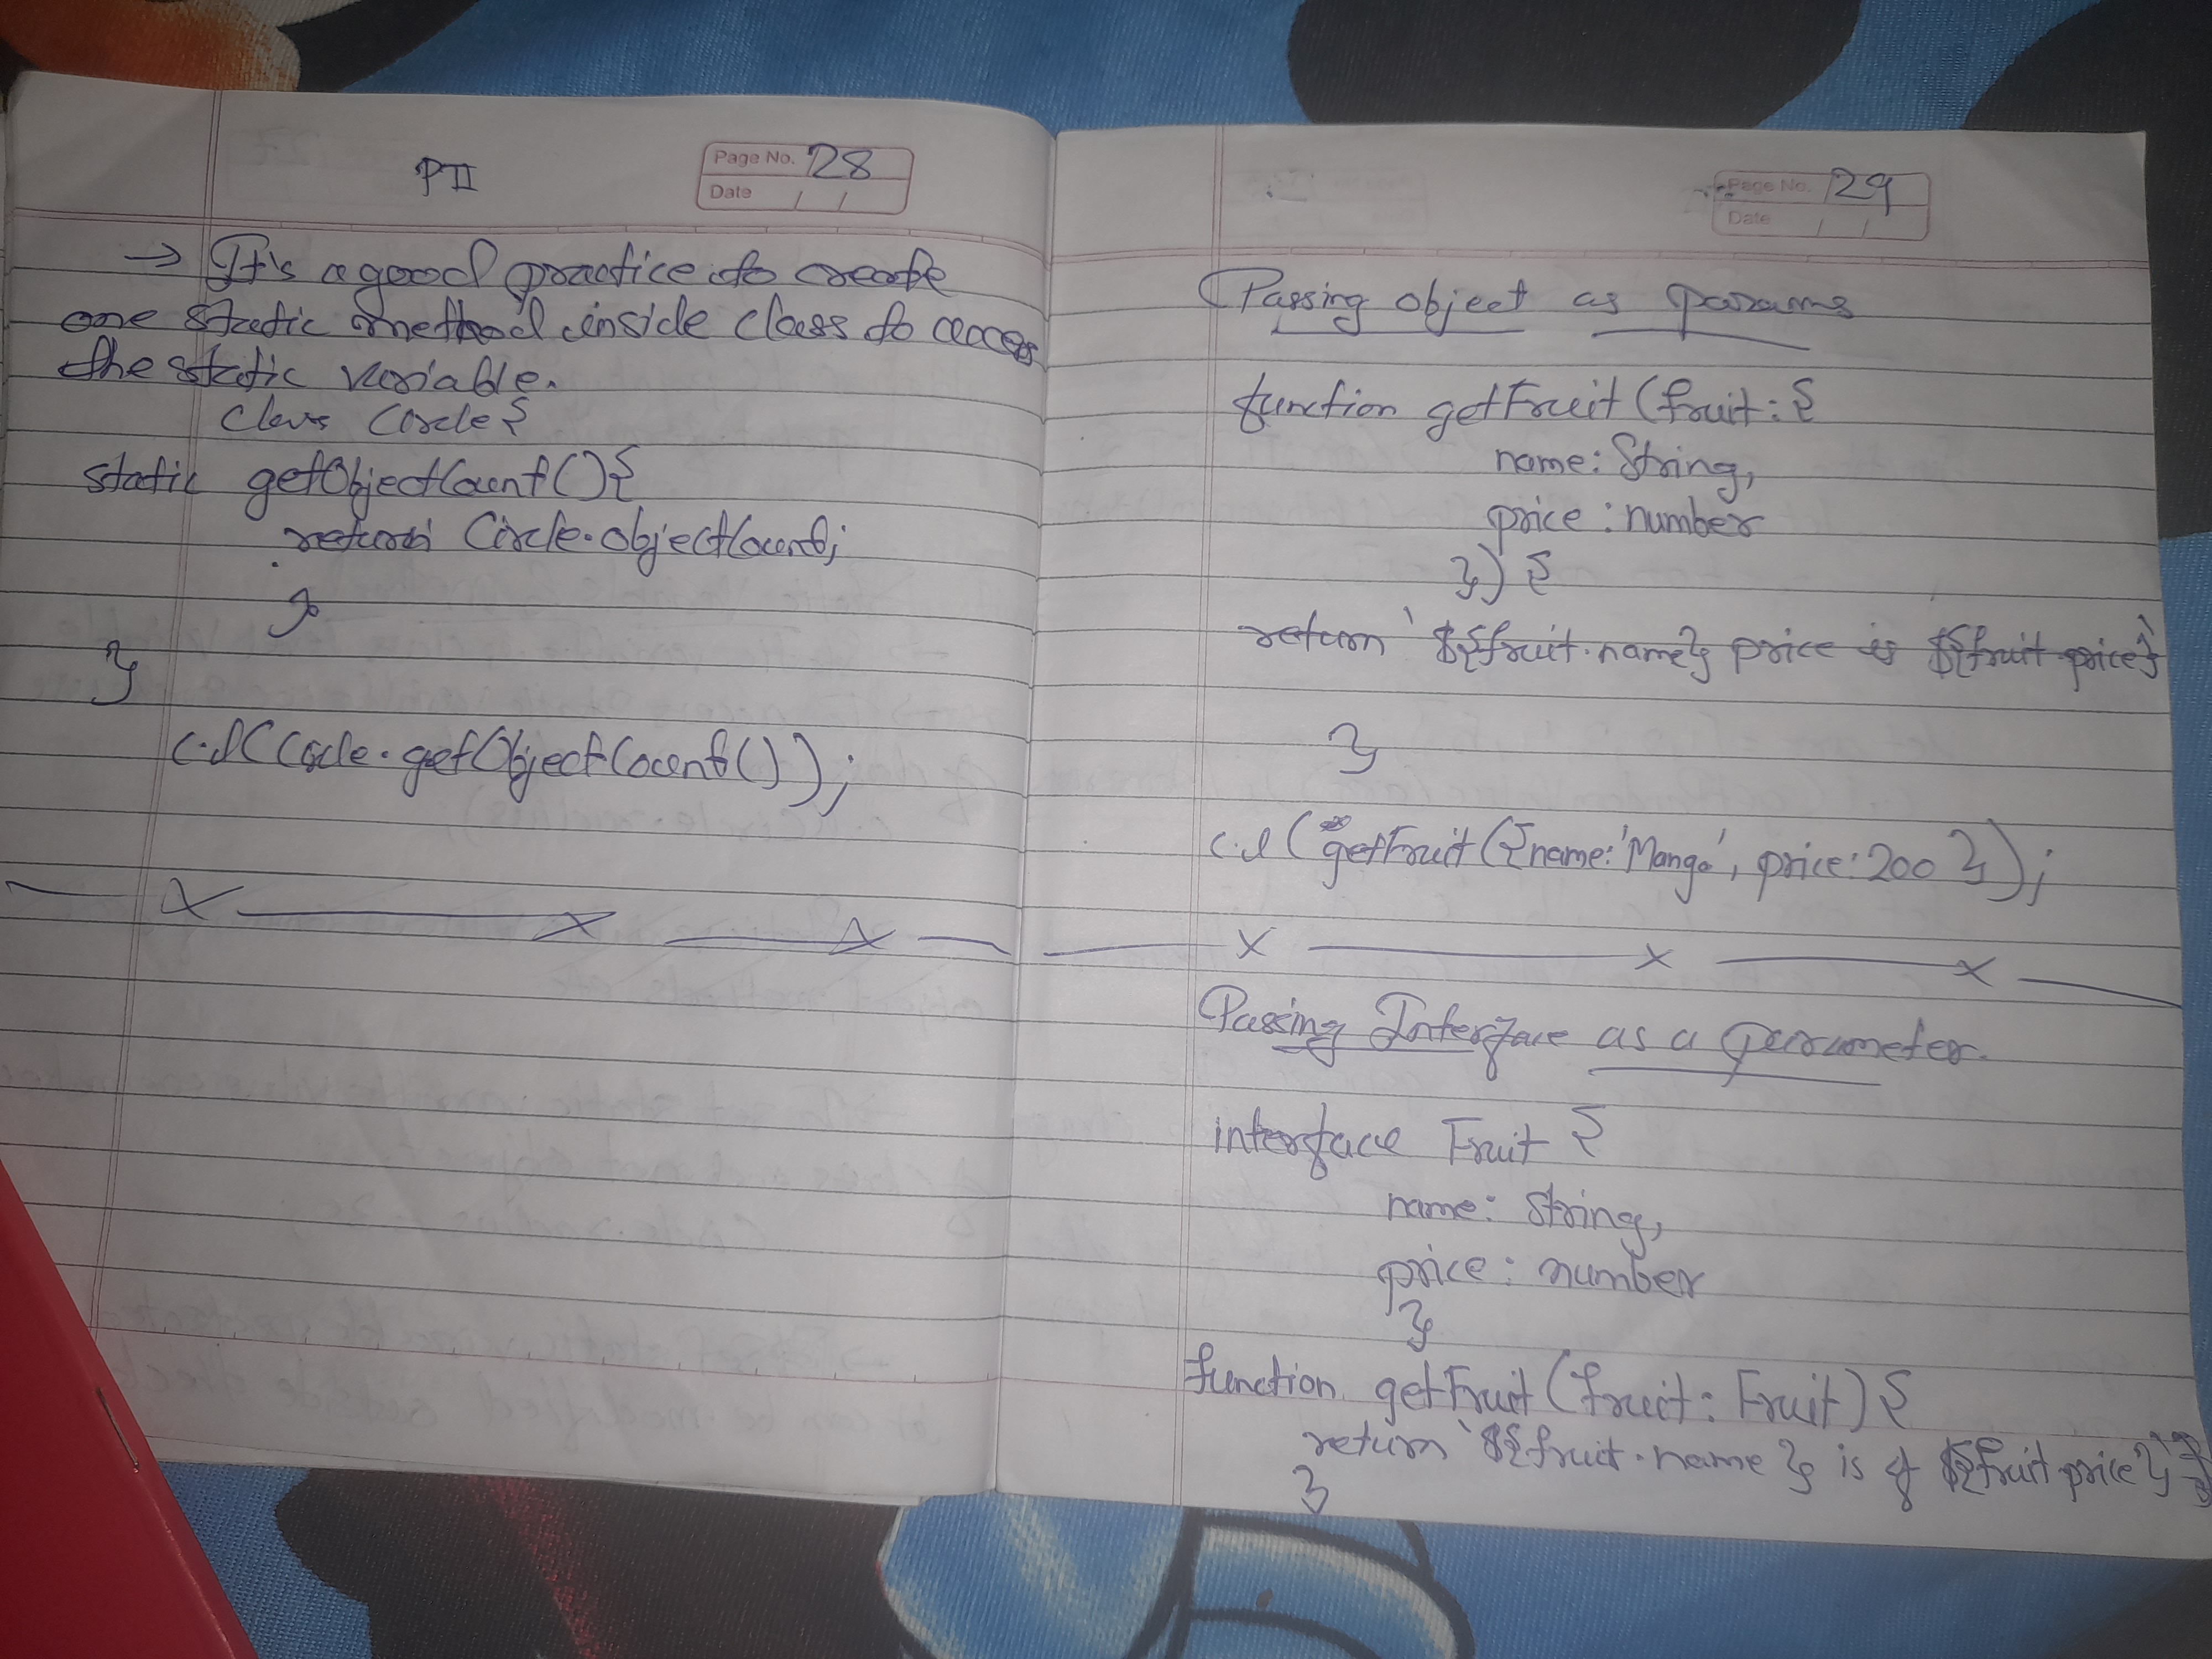 PII
Page No. 28
Date / /
→ It's a good practice to create
one static method inside class to access
the static variable.
class Circle {
static getObjectCount() {
return Circle.objectCount;
}
}
c.l(Circle.getObjectCount());
x x x
Page No. 29
Date / /
Passing object as params
function getFruit (fruit: {
name: String,
price: number
}) {
return `${fruit.name} price is ${fruit.price}`
}
c.l (getFruit({name:'Mango', price:200 });
x x x
Passing Interface as a parameter.
interface Fruit {
name: String,
price: number
}
function getFruit (fruit: Fruit) {
return `${fruit.name} is of ${fruit.price}`;
}